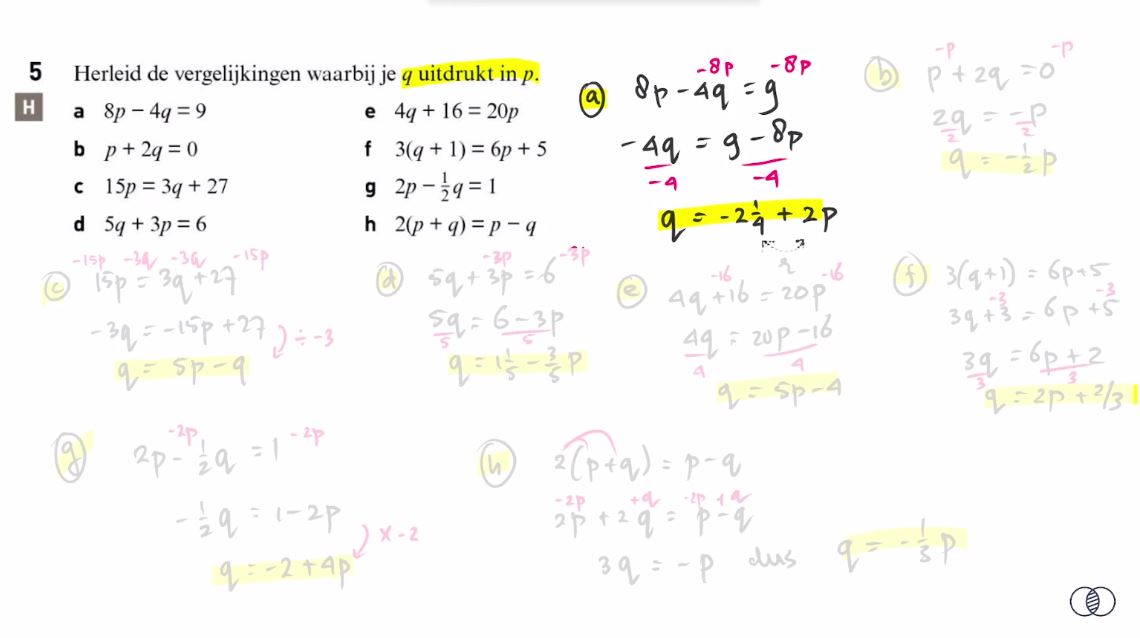 5 Herleid de vergelijkingen waarbij je q uitdrukt in p.
H
a 8p − 4q = 9
b p + 2q = 0
c 15p = 3q + 27
d 5q + 3p = 6
e 4q + 16 = 20p
f 3(q + 1) = 6p + 5
g 2p − ½q = 1
h 2(p + q) = p − q
a
-8p -8p
8p - 4q = 9
-4q = 9 - 8p
-4 -4
q = -2¼ + 2p
b
-p -p
p + 2q = 0
2q = -p
2 2
q = -½p
c
-15p -3q -3q -15p
15p = 3q + 27
-3q = -15p + 27
÷ -3
q = 5p - 9
d
-3p -3p
5q + 3p = 6
5q = 6 - 3p
5 5
q = 1⅕ - ⅗p
e
-16 -16
4q + 16 = 20p
4q = 20p - 16
4 4
q = 5p - 4
f
3(q+1) = 6p+5
-3 -3
3q + 3 = 6p + 5
3q = 6p + 2
3 3
q = 2p + 2/3
g
-2p -2p
2p - ½q = 1
-½q = 1 - 2p
x -2
q = -2 + 4p
h
2(p+q) = p - q
-2p +q -2p +q
2p + 2q = p - q
3q = -p dus q = -⅓p